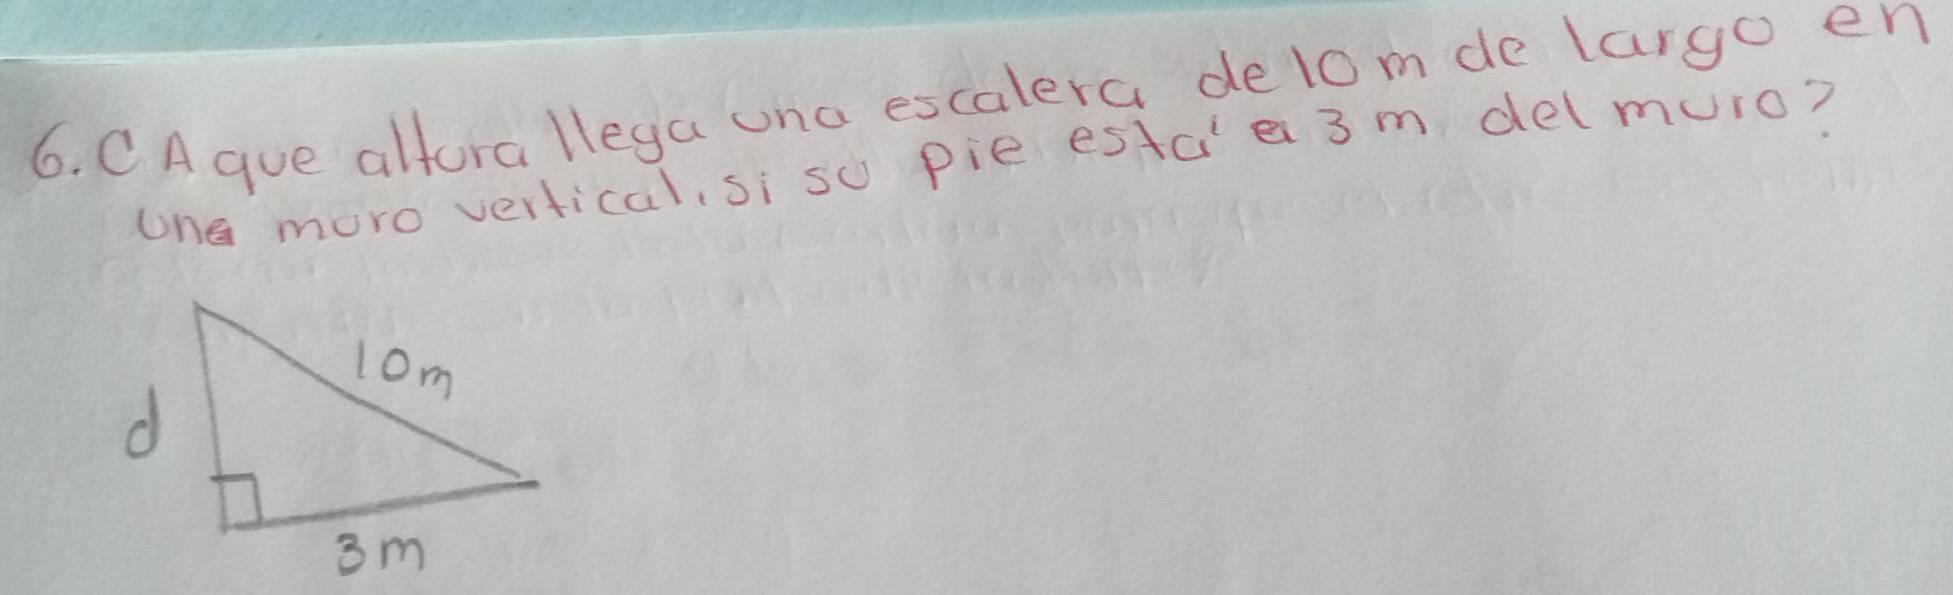 6. ¿A que altura llega una escalera de 10 m de largo en
una muro vertical, si su pie está a 3 m del muro?
10m
d
3m